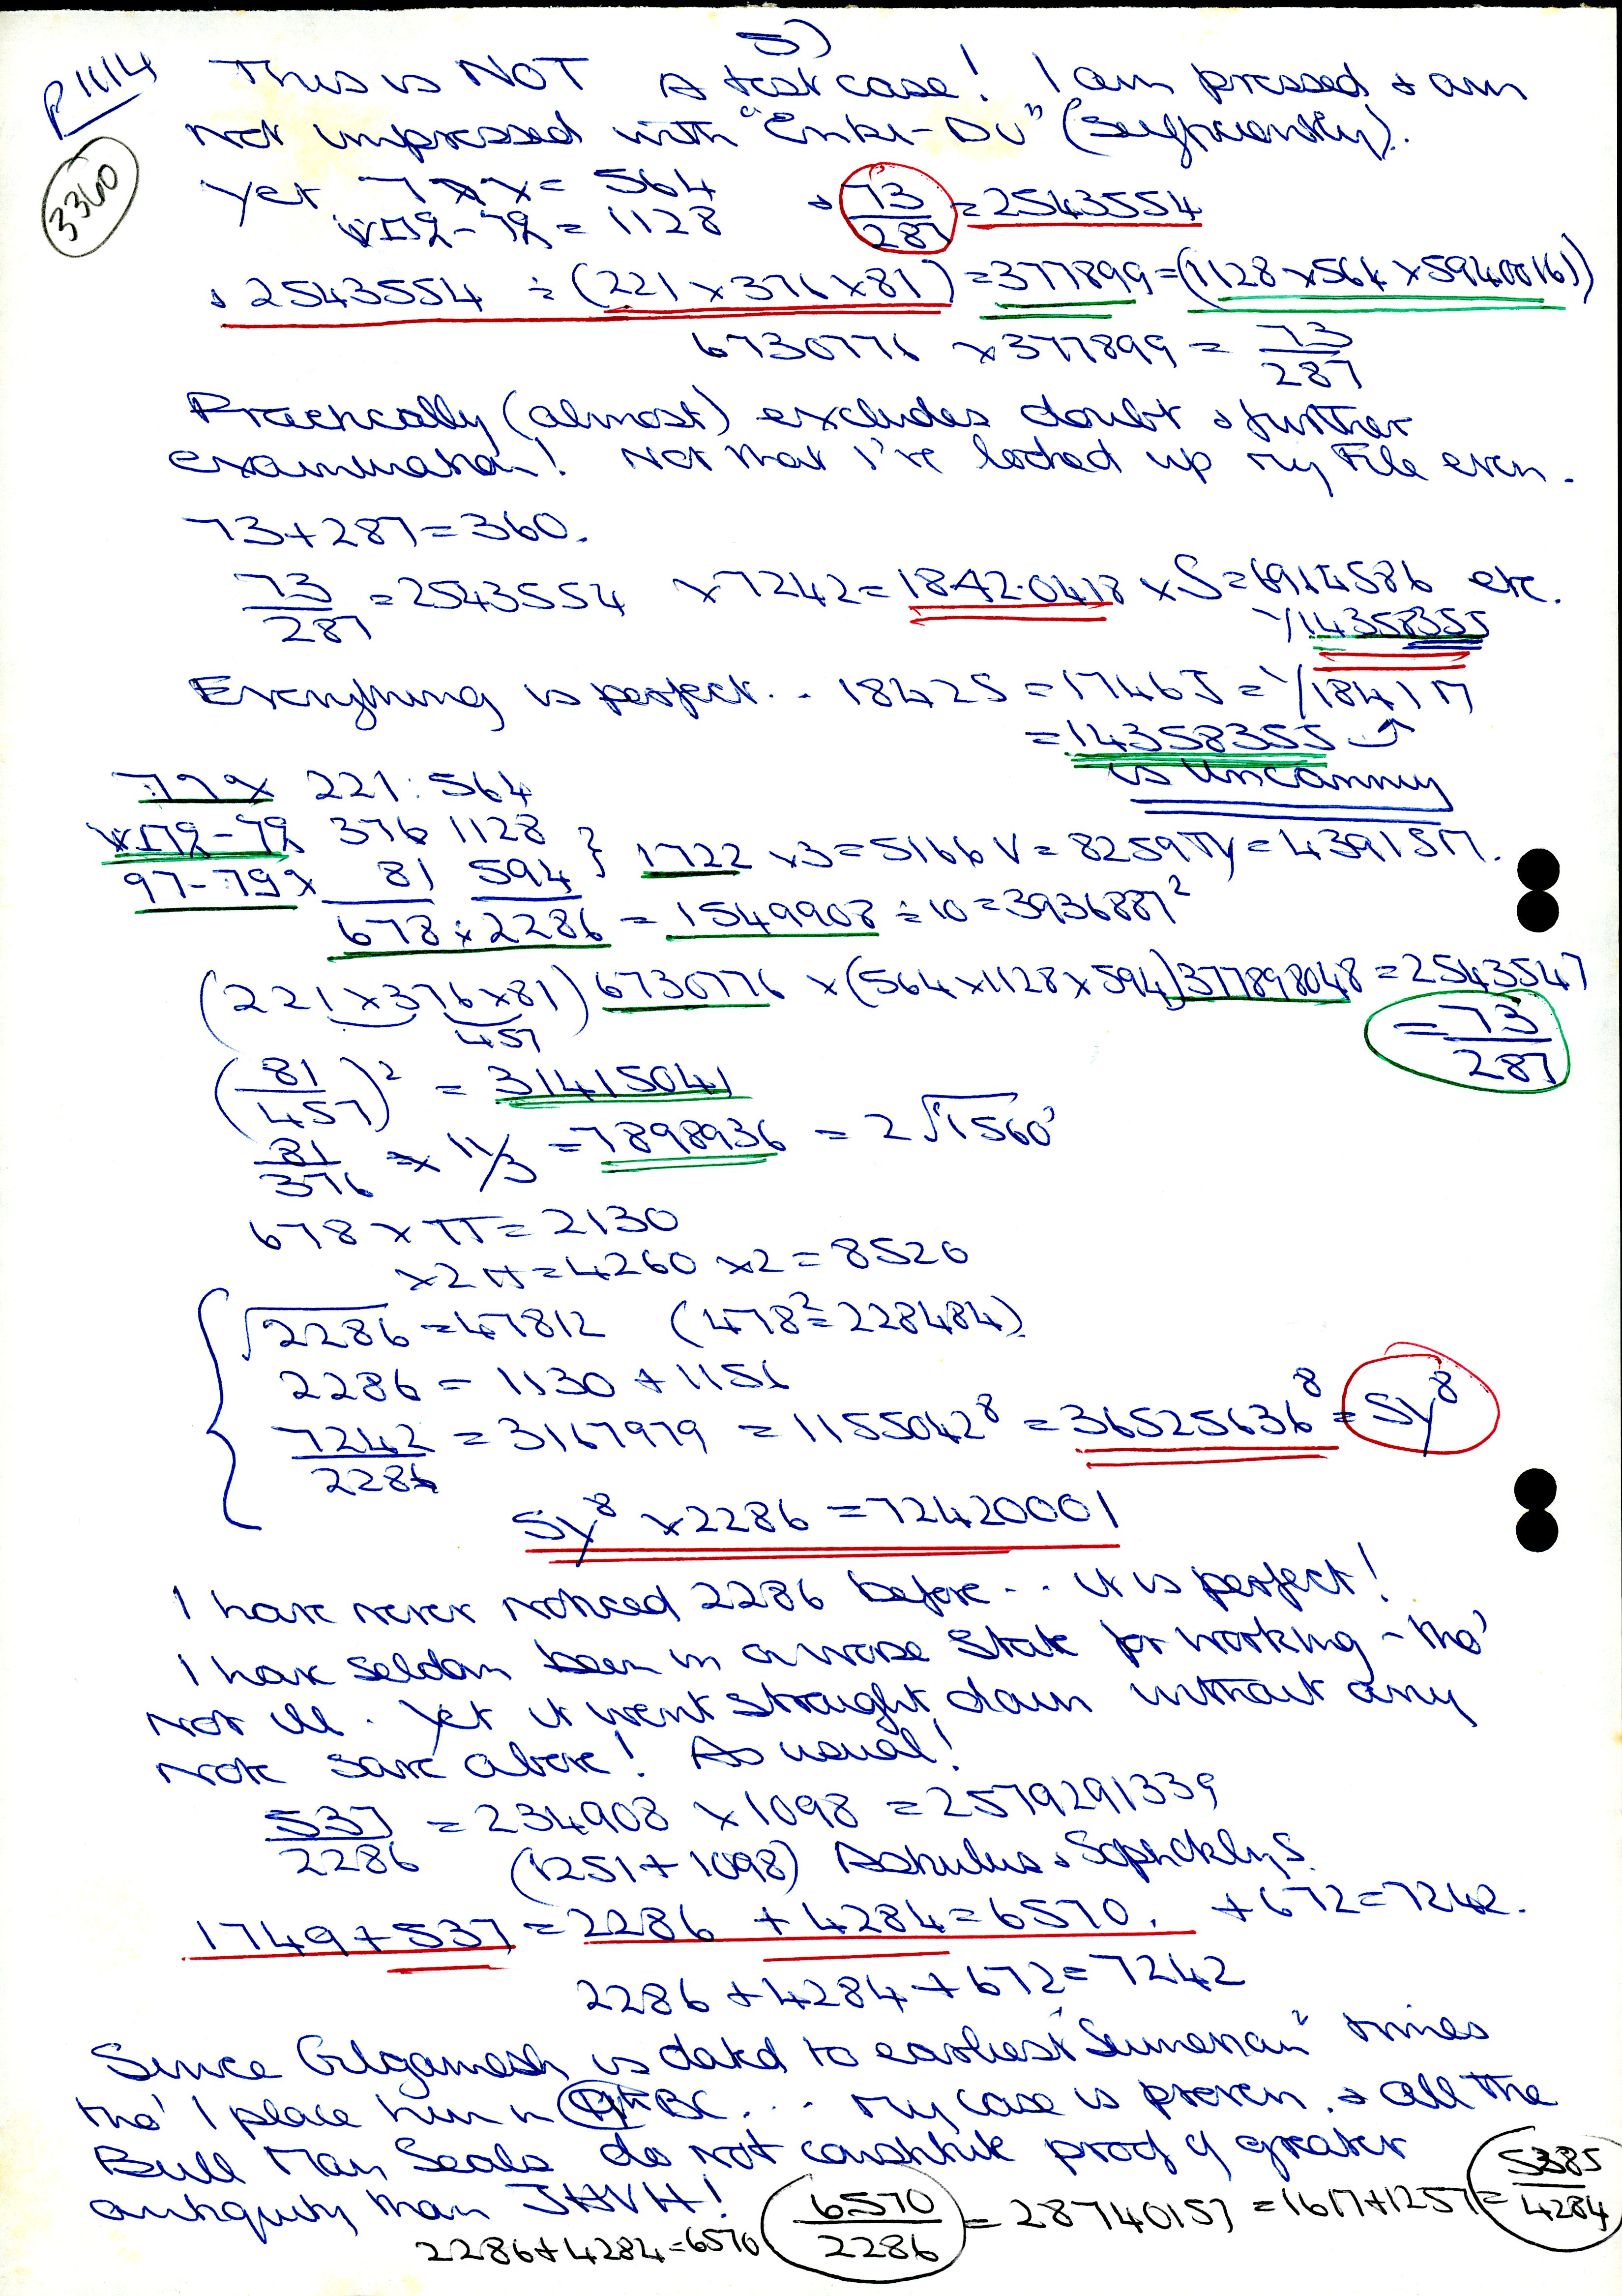 5)
P1114
This is NOT A test case! I am pressed & am
3340
not impressed with "Enki-Du" (sufficiently).
Yet = 564
= 1128
& 73/287 = 2543554
& 2543554 ÷ (221 x 376 x 81) = 377899 = (1128 x 564 x 59400161)
6730776 x 377899 = 73/287
Practically (almost) excludes doubt & further
examination! Not that I've looked up my File even.
73+287=360.
73/287 = 2543554 x 7242 = 1842.0418 x S = 6914586 etc.
Y/14358355
Everything is perfect.. 1842S = 1746J = Y/1841π
= 14358355
is uncanny
221 : 564
376 1128 } 1722 x3 = 5166 V = 8259 π/γ = 43915π.
81 594
678 x 2286 = 1549908 ÷ 10 = 3936887²
(221 x 376 x 81) 6730776 x (564 x 1128 x 594) 377898048 = 2543547
457
= 73/287
(81/457)² = 31415041
81/376 x 11/3 = 7898936 = 2√1560'
678 x π = 2130
x 2π = 4260 x2 = 8520
√2286 = 47812 (478² = 228484)
2286 = 1130 + 1156
7242/2286 = 3167979 = 1155042⁸ = 36525636⁸ = Sy⁸
Sy⁸ x 2286 = 72420001
I have never noticed 2286 before.. it is perfect!
I have seldom been in a worse State for working - tho'
not ill. Yet it went straight down without any
note save above! As usual!
537/2286 = 234908 x 1098 = 2579291339
(1251 + 1098) & S.
1749 + 537 = 2286 + 4284 = 6570. + 672 = 7242.
2286 + 4284 + 672 = 7242
Since Gilgamesh is dated to earliest "Sumerian" times
tho' I place him in BC... my case is proven, & all the
Bull Man Seals do not constitute proof of greater
antiquity than JHVH!
2286+4284=6570 6570/2286 = 28740157 = 1617+1257 = 5385/4284